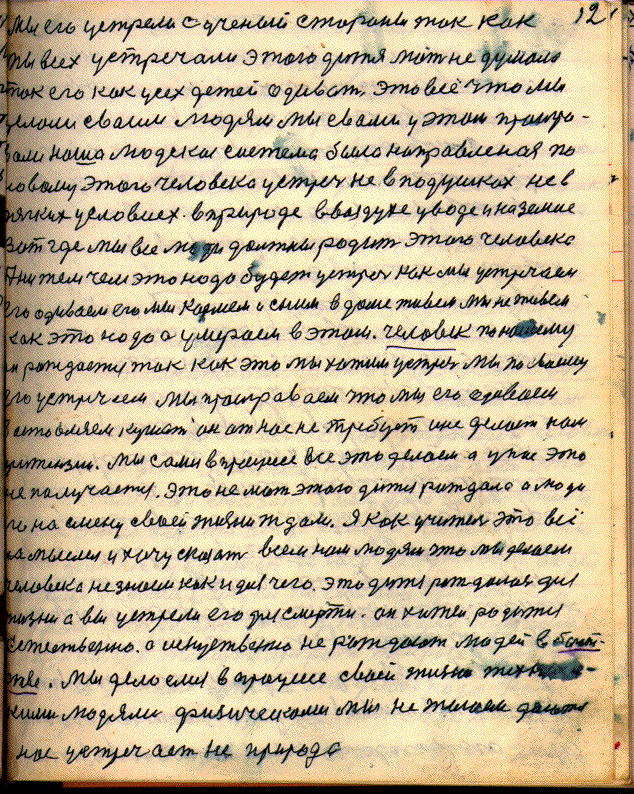 12
мы его устрели с ученый стороны так как
мы всех устречали этого дитя мать не думала
так его как усех детей одивать. Это всё что мы
делали сваими людями мы сваими у этом проигра-
вали наша людская система была направленая по
новому этого человека устреч не в подушках не в
мягких условиех. в природе в воздухе у воде и на земле
вот где мы все люди должны родить этого человека
А ни тем чем это надо будет устреч как мы устречаем
его одиваем его мы кормем и сыним в доме живем мы не живем
как это надо а умераем в этом. человек по нашему
и раждаетця так как это мы хотим устреч мы по своему
его устречаем мы проиграваем что мы его одиваем
заставляем кушать он от нас не требует и не делает нам
притензии. мы сами в процессе все это делаем а у нас это
не палучается. Это не мать этого дитя раждала а люди
его на смену своей жизни ждали. Я как учитель это всё
на мыслел и хочу сказать всем нам людям что мы делаем
человека не знаем как и для чего. это дитя раждалася для
жизни а вы устрели его для смерти. он хител родитця
естественно. а искуственно не раждают людей в багат-
тве. мы делаемся в процессе своей жизни техниче-
скими людями физическоми мы не желаем довать
нас устречает не природа